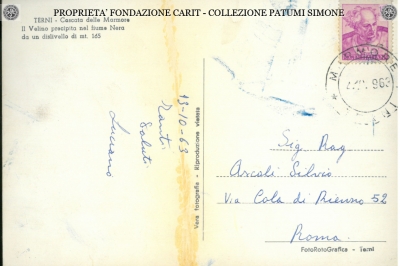 PROPRIETA' FONDAZIONE CARIT - COLLEZIONE PATUMI SIMONE
TERNI - Cascata delle Marmore
Il Velino precipita nel fiume Nera
da un dislivello di mt. 165
13-10-63
Tanti
Saluti
Luciano
Vera fotografia - Riproduzione vietata
MARMORE
Sig. Rag
Arcoli Silvio
Via Cola di Rienzo 52
Roma
FotoRotoGrafica - Terni